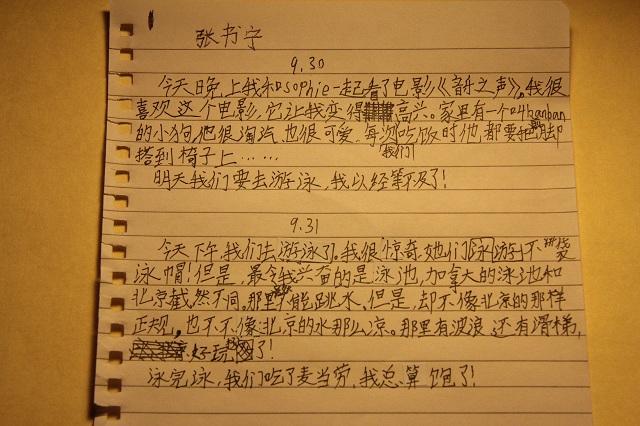 张书宁
9.30
今天晚上我和sophie一起看了电影《音乐之声》。我很
喜欢这个电影，它让我变得高兴。家里有一个叫banban
的小狗，他很淘汽，也很可爱，每次吃饭时他都要把脚
搭到我们椅子上……
明天我们要去游泳，我以经等不及了！
9.31
今天下午，我们去游泳了。我很惊奇，她们游泳不
泳帽！但是，最令我兴奋的是泳池，加拿大的泳池和
北京截然不同，那里能跳水、但是，却不像北京的那样
正规，也不不像北京的水那么凉。那里有波浪，还有滑梯，
好玩了！
泳完泳，我们吃了麦当劳，我总算饱了！